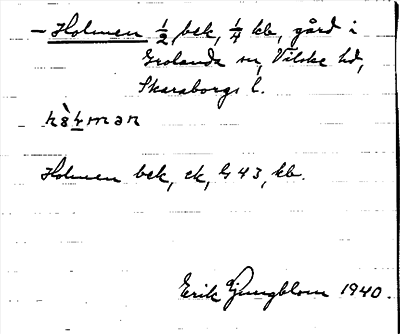 – Holmen ½ bek, ¼ kb, gård i
Grolanda sn, Vilske hd,
Skaraborgs l.
Holmen bek, ek, G 43, kb.
Erik Ljungblom 1940.